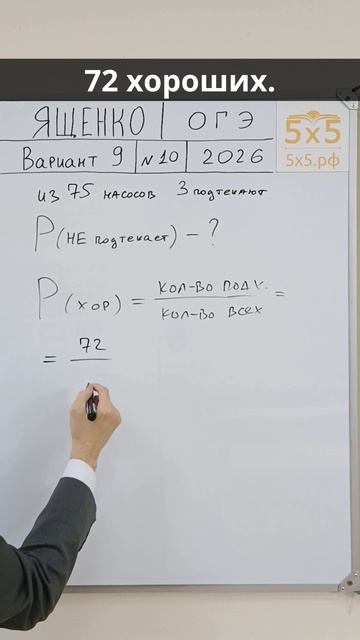 72 хороших.
ЯЩЕНКО | ОГЭ
5x5
Вариант 9 | №10 | 2026
5x5.рф
из 75 насосов 3 подтекают
P(не подтекает) - ?
P(хор) = кол-во подх. / кол-во всех =
= 72